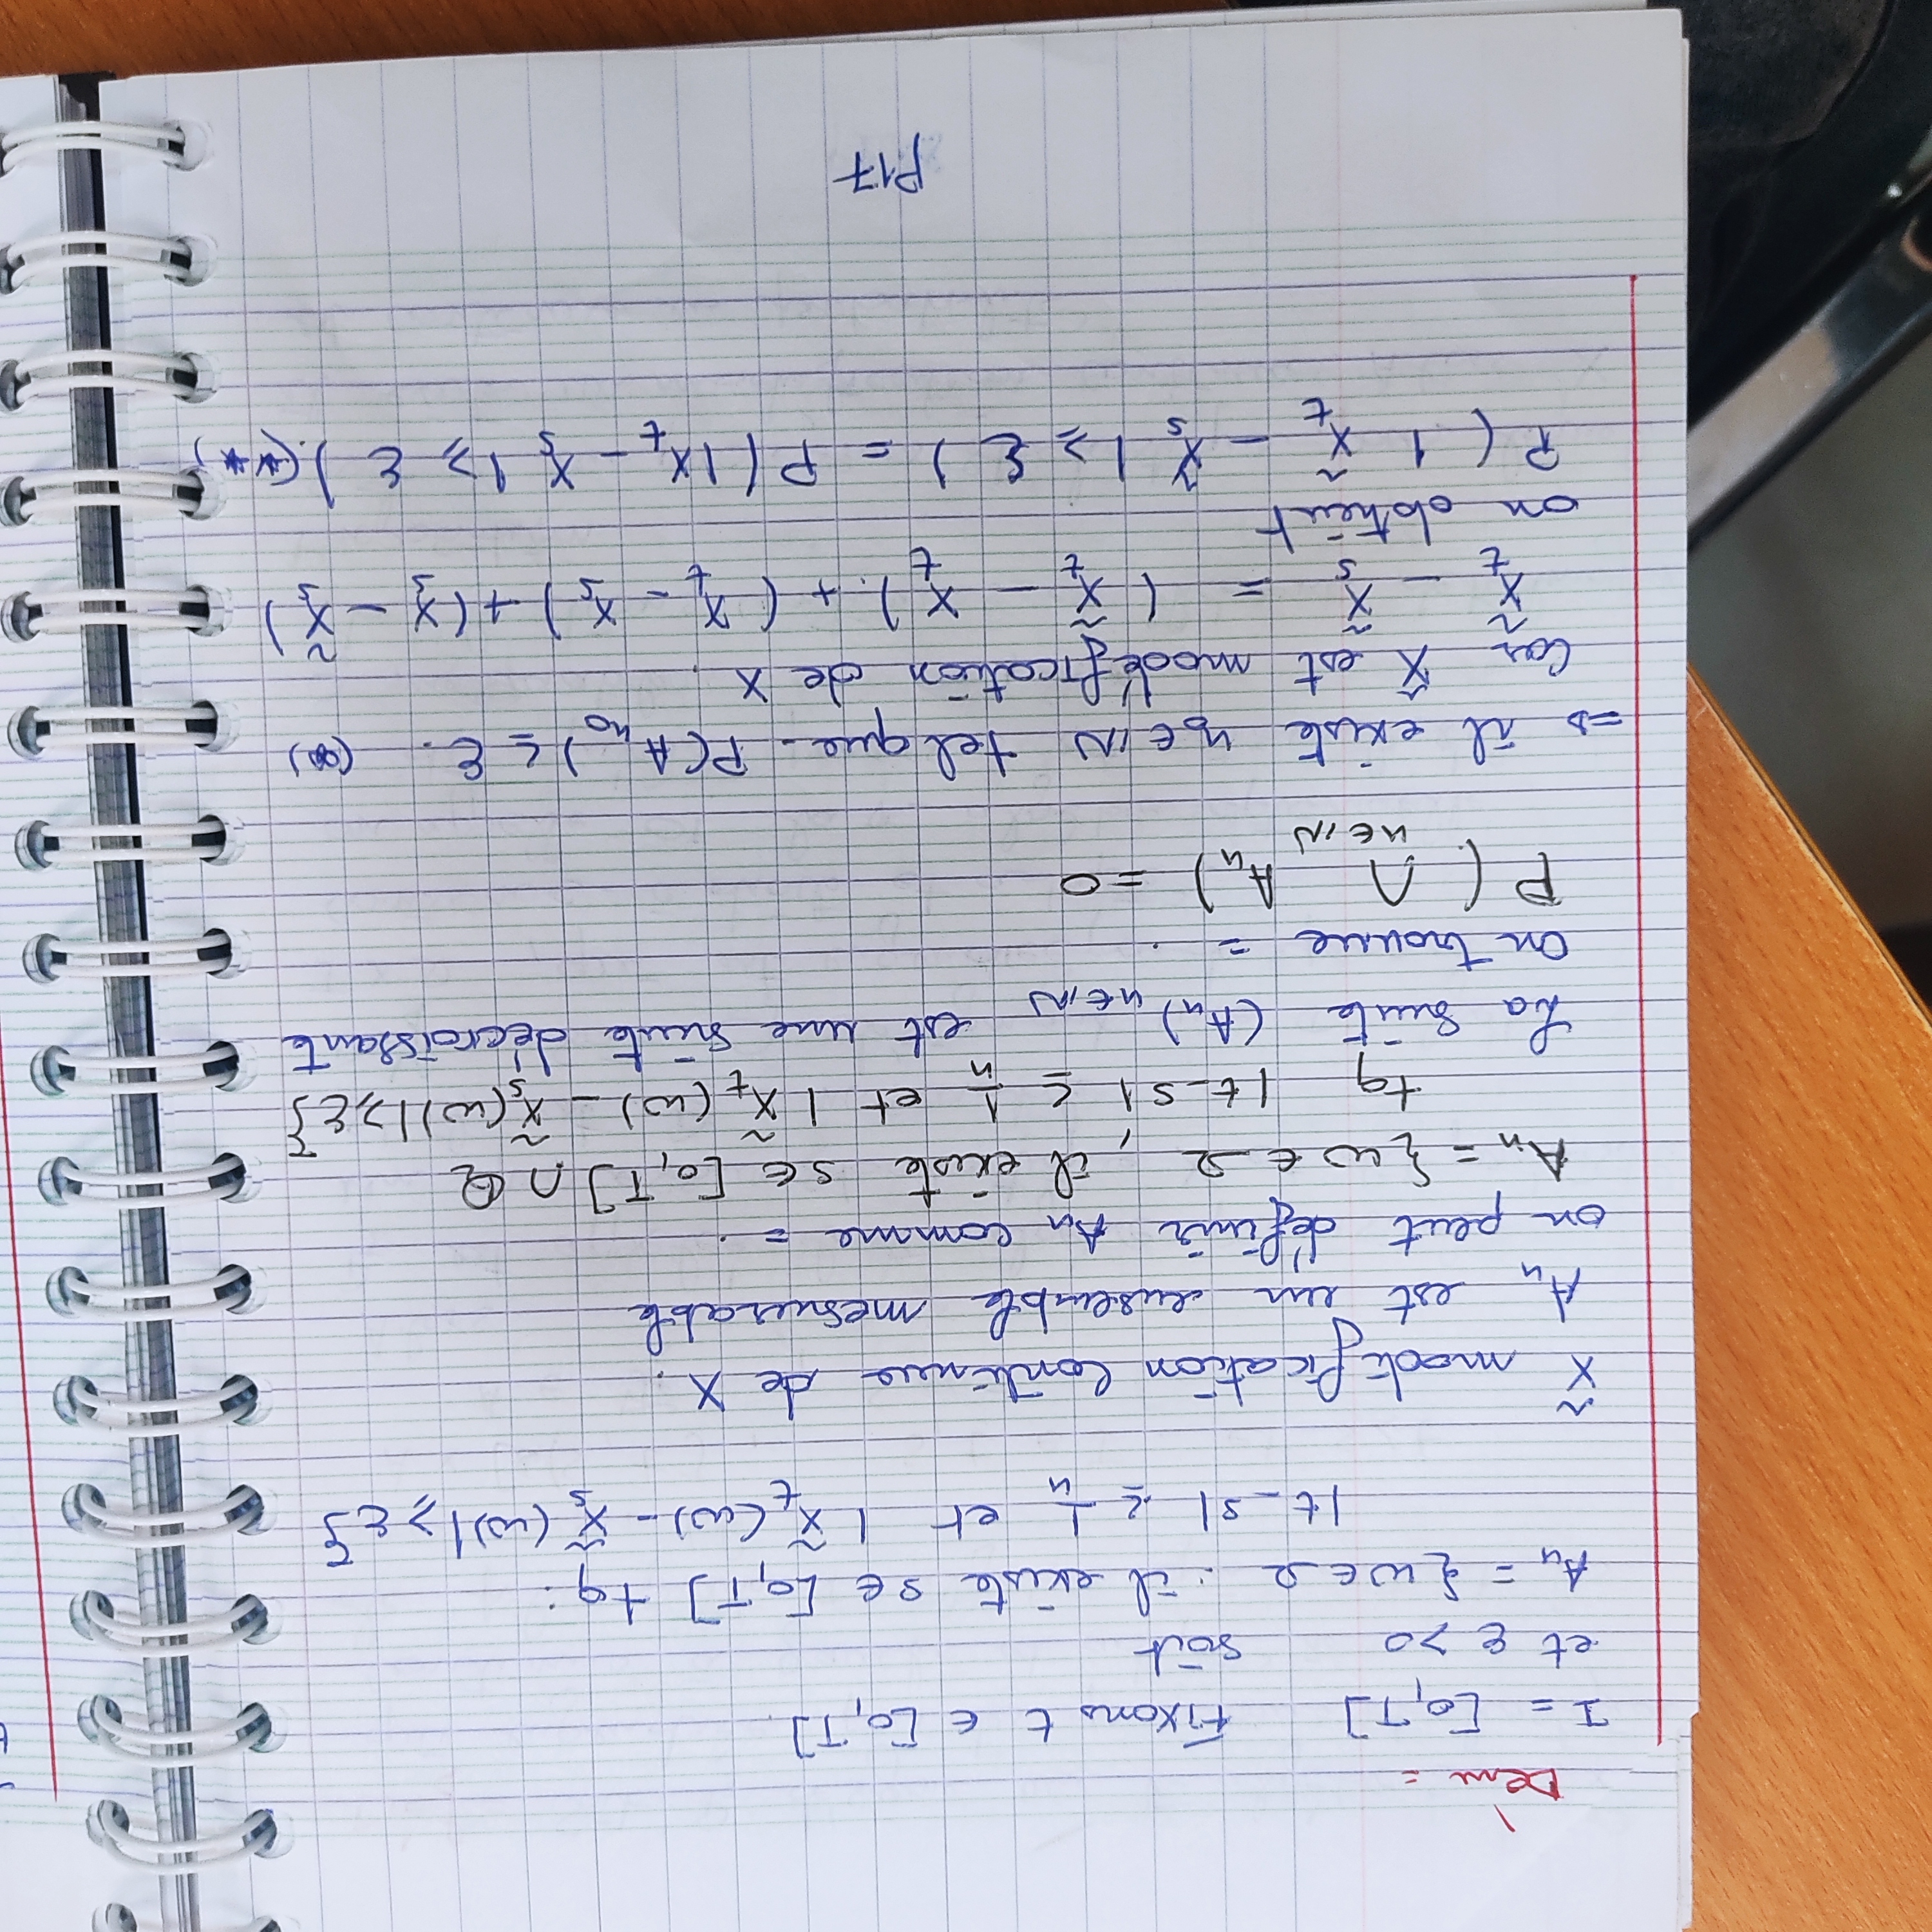 Dém =
I = [0,T] Fixons t ∈ [0,T].
et ε > 0 soit
Aₙ = {ω ∈ Ω : il existe s ∈ [0,T] tq :
|t - s| ≤ 1/n et |X̃ₜ(ω) - X̃ₛ(ω)| ≥ ε}
X̃ modification continue de X.
Aₙ est un ensemble mesurable
on peut définir Aₙ comme = .
Aₙ = {ω ∈ Ω, il existe s ∈ [0,T] ∩ Q
tq |t - s| ≤ 1/n et |X̃ₜ(ω) - X̃ₛ(ω)| ≥ ε}
La suite (Aₙ)ₙ∈ℕ est une suite décroissante
on trouve = .
P(∩ₙ∈ℕ Aₙ) = 0
⇒ il existe n₀ ∈ ℕ tel que. P(Aₙ₀) ≤ ε. (*)
Car X̃ est modéfication de X.
X̃ₜ - X̃ₛ = (X̃ₜ - Xₜ) + (Xₜ - Xₛ) + (Xₛ - X̃ₛ)
on obtient
P(|X̃ₜ - X̃ₛ| ≥ ε) = P(|Xₜ - Xₛ| ≥ ε).(**)
P17